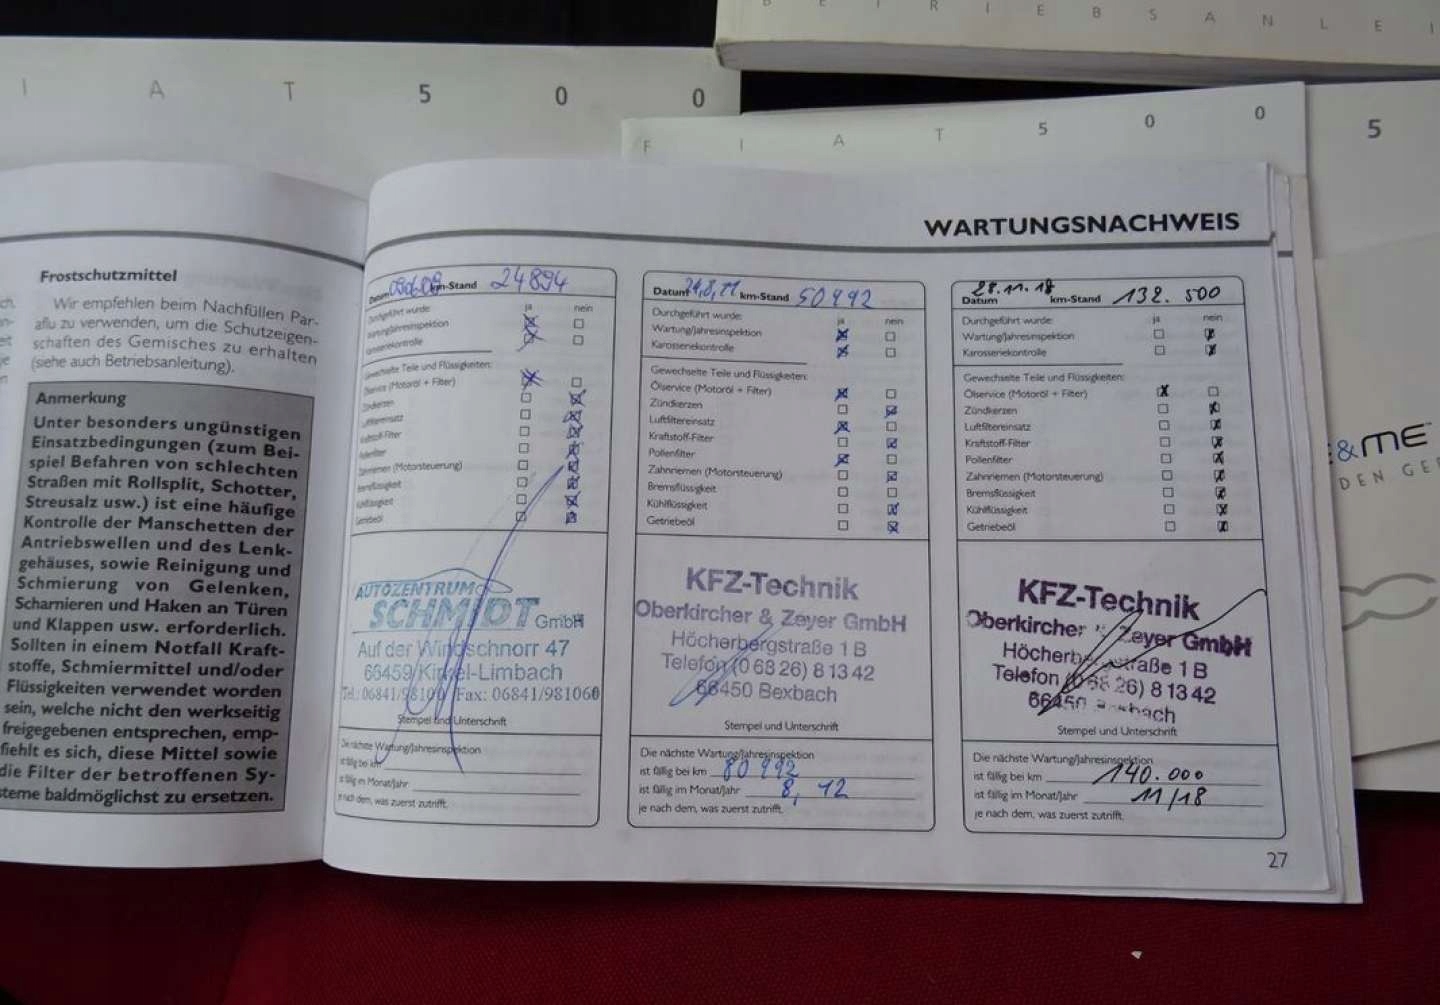 BETRIEBSANLEI
IAT500
FIAT500
5
&ME™
DEN GE
Frostschutzmittel
Wir empfehlen beim Nachfüllen Par-
aflu zu verwenden, um die Schutzeigen-
schaften des Gemisches zu erhalten
(siehe auch Betriebsanleitung).
Anmerkung
Unter besonders ungünstigen
Einsatzbedingungen (zum Bei-
spiel Befahren von schlechten
Straßen mit Rollsplit, Schotter,
Streusalz usw.) ist eine häufige
Kontrolle der Manschetten der
Antriebswellen und des Lenk-
gehäuses, sowie Reinigung und
Schmierung von Gelenken,
Scharnieren und Haken an Türen
und Klappen usw. erforderlich.
Sollten in einem Notfall Kraft-
stoffe, Schmiermittel und/oder
Flüssigkeiten verwendet worden
sein, welche nicht den werkseitig
freigegebenen entsprechen, emp-
fiehlt es sich, diese Mittel sowie
die Filter der betroffenen Sy-
steme baldmöglichst zu ersetzen.
WARTUNGSNACHWEIS
Datum km-Stand 24894
Durchgeführt wurde: ja nein
Wartung/Jahresinspektion
Karosseriekontrolle
Gewechselte Teile und Flüssigkeiten:
Ölservice (Motoröl + Filter)
Zündkerzen
Luftfiltereinsatz
Kraftstoff-Filter
Pollenfilter
Zahnriemen (Motorsteuerung)
Bremsflüssigkeit
Kühlflüssigkeit
Getriebeöl
AUTOZENTRUM
SCHMIDT GmbH
Auf der Windschnorr 47
66459 Kirkel-Limbach
Tel.: 06841/98100 Fax: 06841/981060
Stempel und Unterschrift
Die nächste Wartung/Jahresinspektion
ist fällig bei km
ist fällig im Monat/Jahr
je nach dem, was zuerst zutrifft.
Datum km-Stand 50992
Durchgeführt wurde: ja nein
Wartung/Jahresinspektion
Karosseriekontrolle
Gewechselte Teile und Flüssigkeiten:
Ölservice (Motoröl + Filter)
Zündkerzen
Luftfiltereinsatz
Kraftstoff-Filter
Pollenfilter
Zahnriemen (Motorsteuerung)
Bremsflüssigkeit
Kühlflüssigkeit
Getriebeöl
KFZ-Technik
Oberkircher & Zeyer GmbH
Höcherbergstraße 1 B
Telefon (0 68 26) 8 13 42
66450 Bexbach
Stempel und Unterschrift
Die nächste Wartung/Jahresinspektion
ist fällig bei km 80992
ist fällig im Monat/Jahr 8, 12
je nach dem, was zuerst zutrifft.
Datum 28.11.18 km-Stand 132.500
Durchgeführt wurde: ja nein
Wartung/Jahresinspektion
Karosseriekontrolle
Gewechselte Teile und Flüssigkeiten:
Ölservice (Motoröl + Filter)
Zündkerzen
Luftfiltereinsatz
Kraftstoff-Filter
Pollenfilter
Zahnriemen (Motorsteuerung)
Bremsflüssigkeit
Kühlflüssigkeit
Getriebeöl
KFZ-Technik
Oberkircher & Zeyer GmbH
Höcherbergstraße 1 B
Telefon (0 68 26) 8 13 42
66450 Bexbach
Stempel und Unterschrift
Die nächste Wartung/Jahresinspektion
ist fällig bei km 140.000
ist fällig im Monat/Jahr 11/18
je nach dem, was zuerst zutrifft.
27